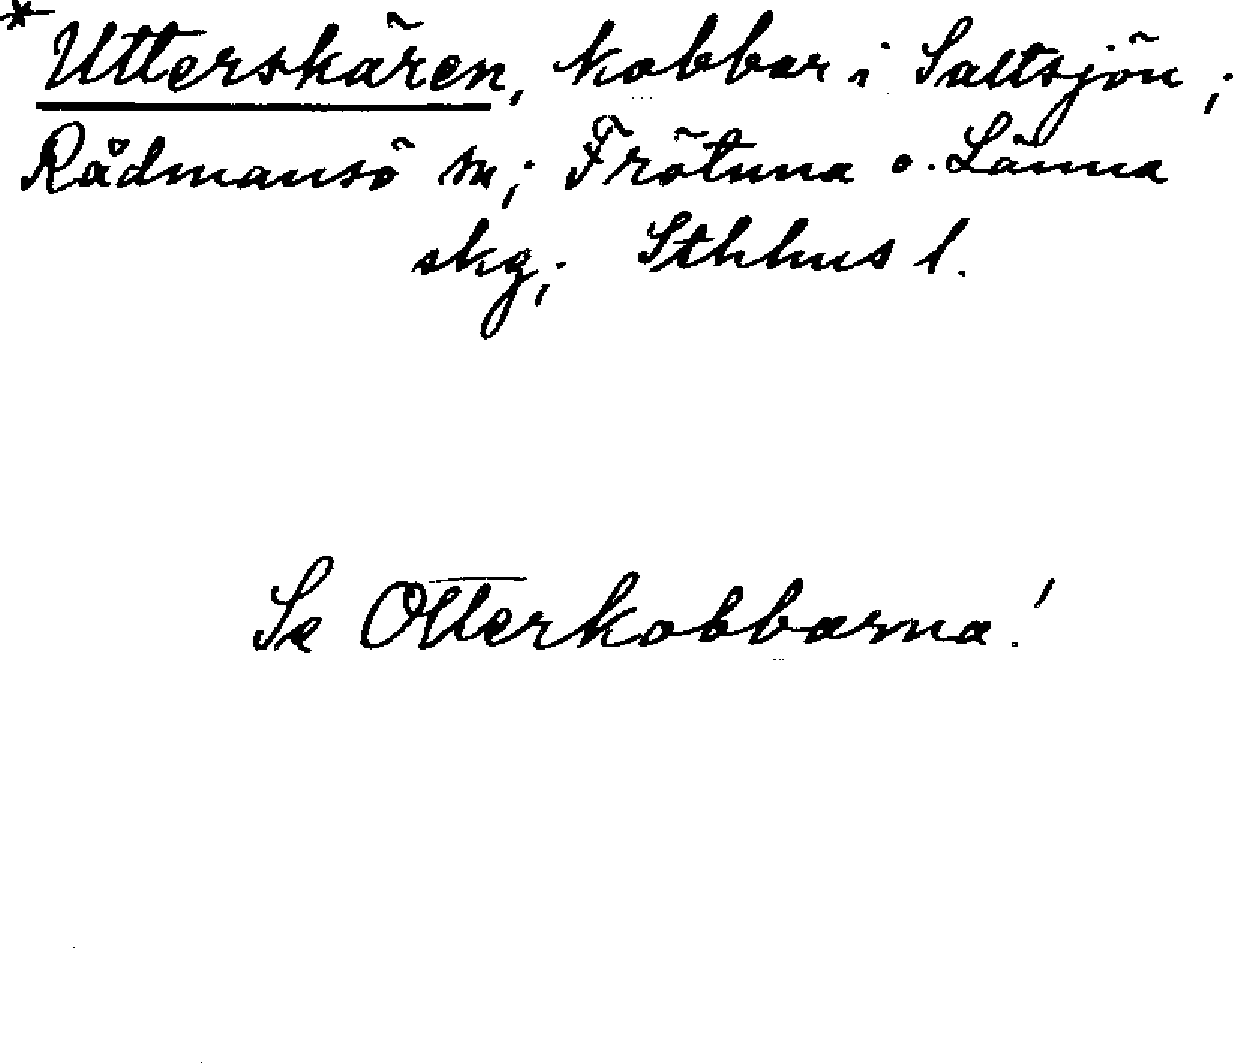 * Utterskären, kobbar i Saltsjön;
Rådmansö sn; Frötuna o. Länna
skg; Sthlms l.
Se Otterkobbarna!